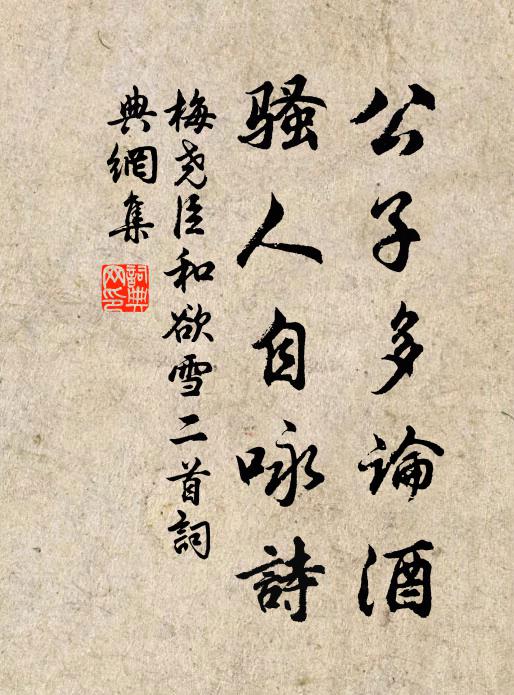 公子多論酒
騷人自咏詩
梅尧臣和欲雪二首詞
典網集
詞典網印